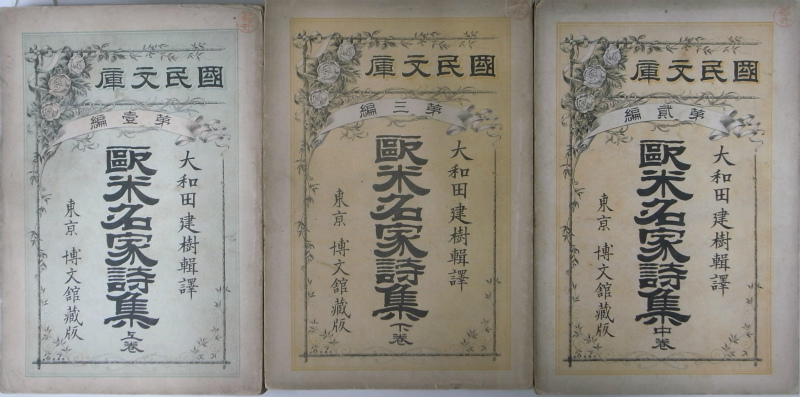 國民文庫
第壹編
大和田建樹輯譯
歐米名家詩集上卷
東京 博文館藏版
國民文庫
第三編
大和田建樹輯譯
歐米名家詩集下卷
東京 博文館藏版
國民文庫
第貳編
大和田建樹輯譯
歐米名家詩集中卷
東京 博文館藏版